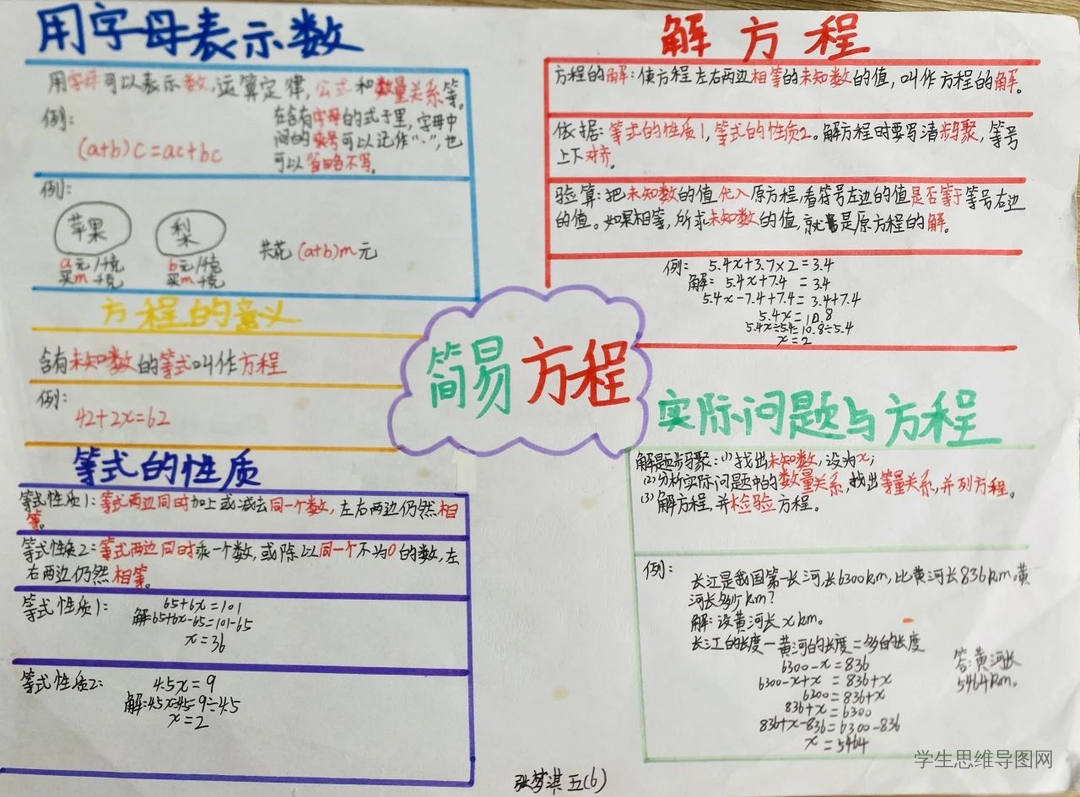 用字母表示数
用字母可以表示数,运算定律,公式和数量关系等。
例:
(a+b)c=ac+bc
在含有字母的式子里,字母中
间的乘号可以记作“·”,也
可以省略不写。
例:
苹果
梨
a元/千克
买m千克
b元/千克
买m千克
共花(a+b)m元
方程的意义
含有未知数的等式叫作方程
例:
42+2x=62
等式的性质
等式性质1:等式两边同时加上或减去同一个数,左右两边仍然相
等。
等式性质2:等式两边同时乘一个数,或除以同一个不为0的数,左
右两边仍然相等。
等式性质1:
65+6x=101
解:65+6x-65=101-65
x=36
等式性质2:
4.5x=9
解:4.5x÷4.5=9÷4.5
x=2
简易方程
解方程
方程的解:使方程左右两边相等的未知数的值,叫作方程的解。
依据:等式的性质1,等式的性质2。解方程时要写清步骤,等号
上下对齐。
验算:把未知数的值代入原方程,看符号左边的值是否等于等号右边
的值。如果相等,所求未知数的值,就是原方程的解。
例: 5.4x+3.7×2=3.4
解: 5.4x+7.4=3.4
5.4x-7.4+7.4=3.4+7.4
5.4x=10.8
5.4x÷5.4=10.8÷5.4
x=2
实际问题与方程
解题步骤:(1)找出未知数,设为x;
(2)分析实际问题中的数量关系,找出等量关系,并列方程。
(3)解方程,并检验方程。
例:
长江是我国第一长河,长6300km,比黄河长836km,黄
河长多少km?
解:设黄河长xkm。
长江的长度-黄河的长度=多的长度
6300-x=836
6300-x+x=836+x
6300=836+x
836+x=6300
836+x-836=6300-836
x=5464
答:黄河长
5464km。
张梦淇 五(6)
学生思维导图网